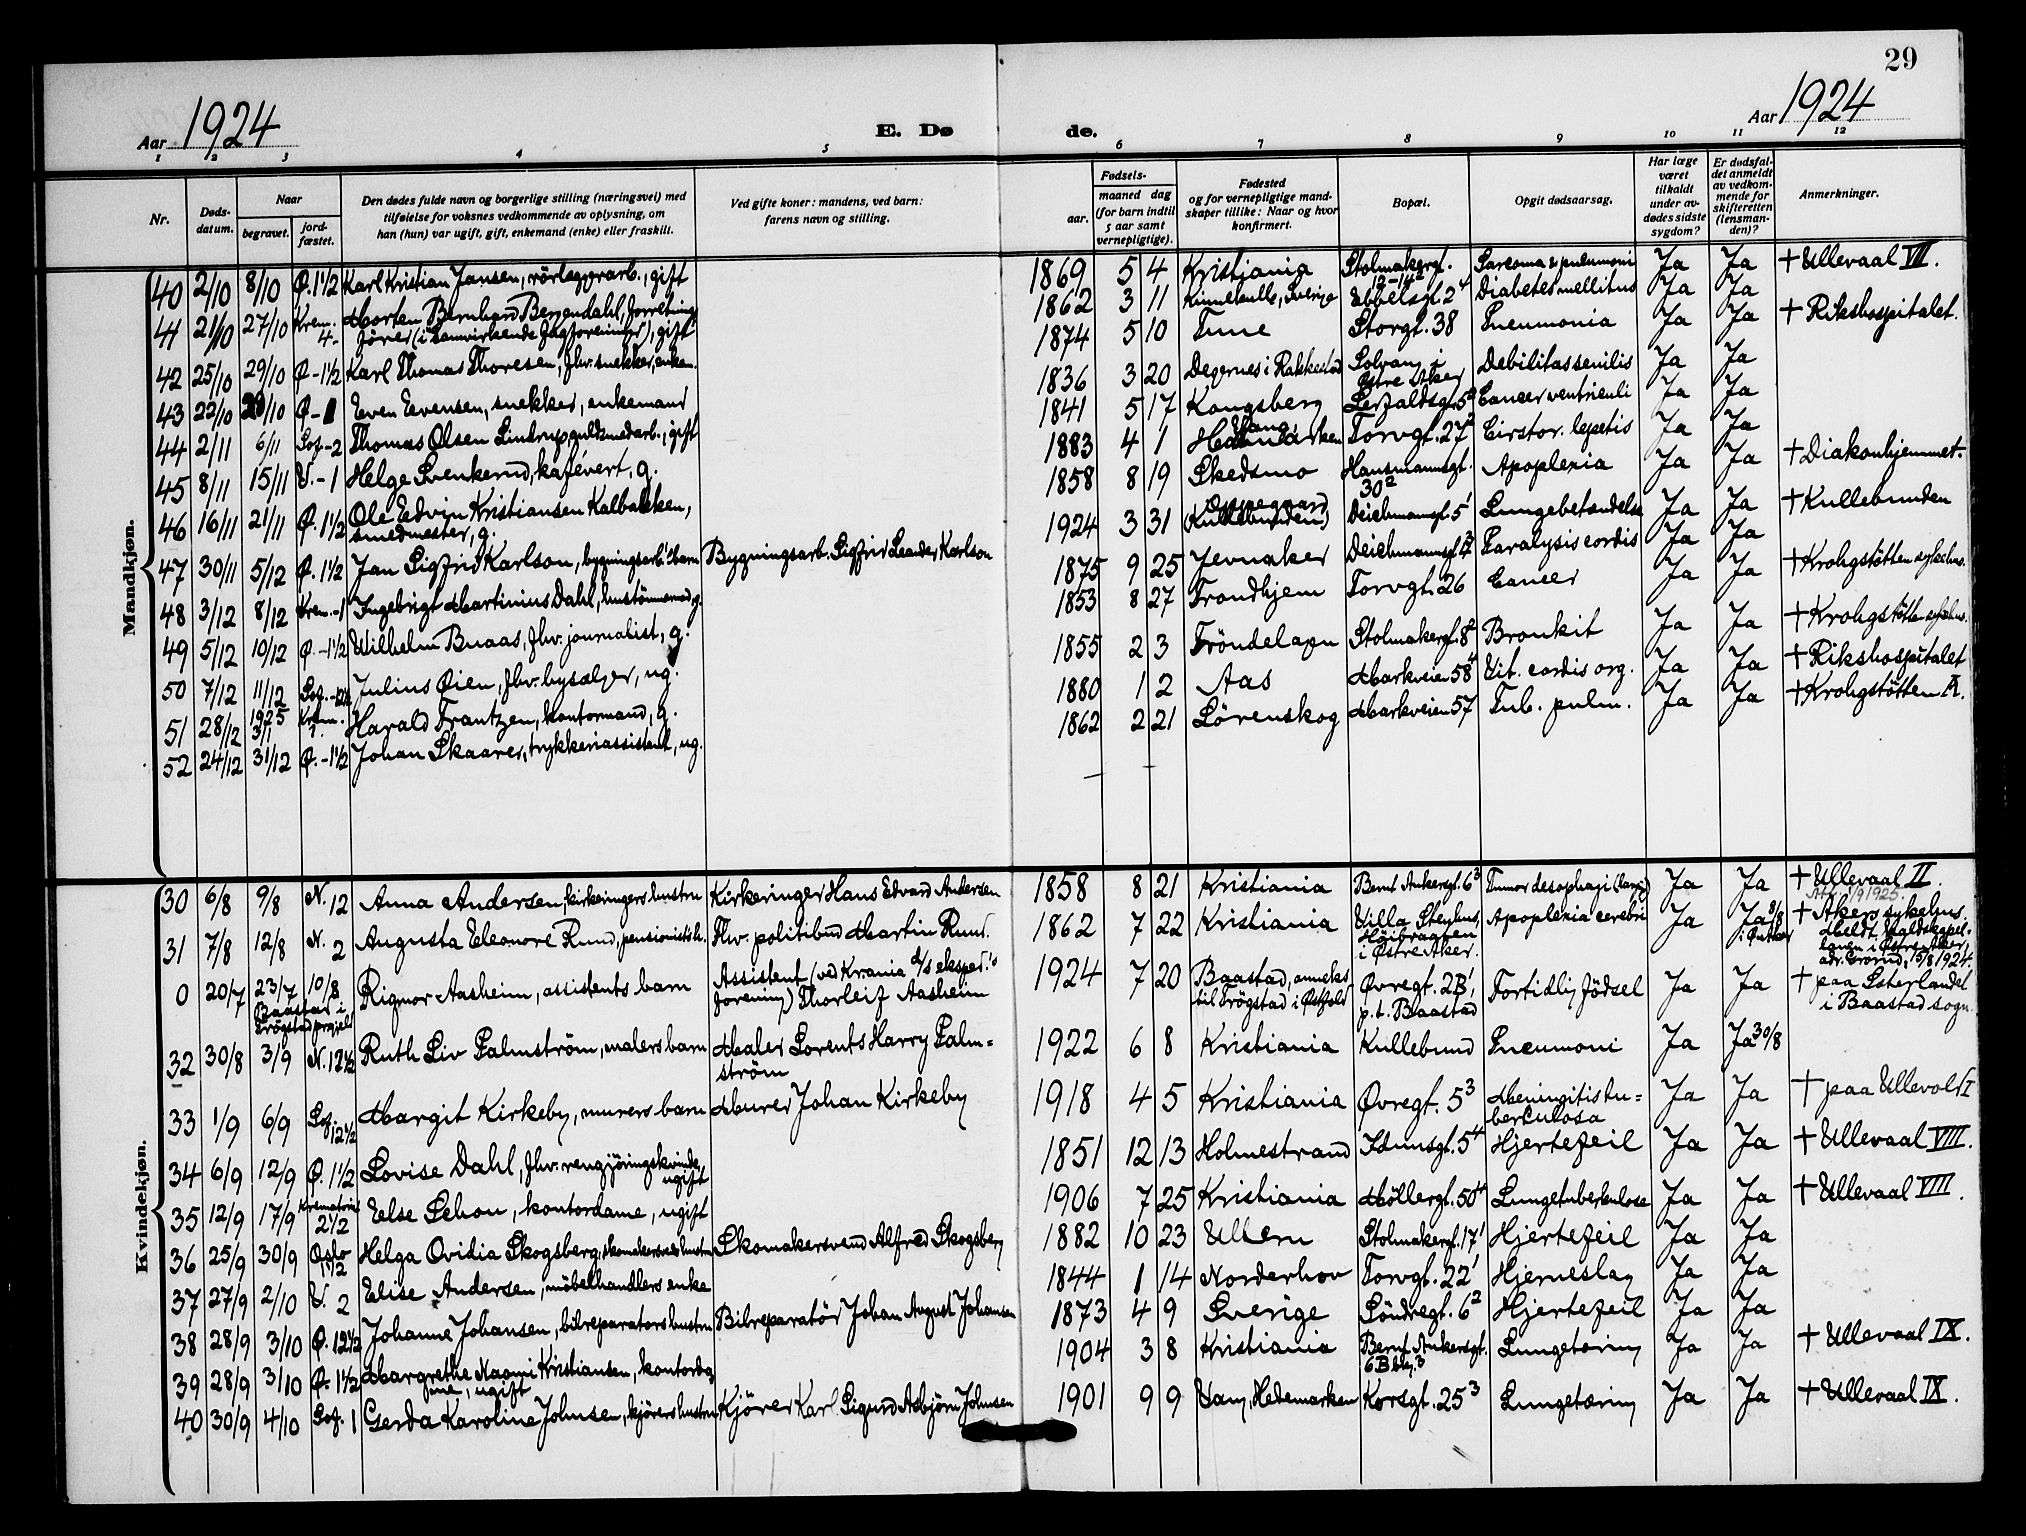 29
Aar 1924
E. Dø de.
Aar 1924
1 2 3 4 5 6 7 8 9 10 11 12
Nr.
Døds-datum.
Naar
begravet.
jord-fæstet.
Den dødes fulde navn og borgerlige stilling (næringsvei) med
tilføielse for voksnes vedkommende av oplysning, om
han (hun) var ugift, gift, enkemand (enke) eller fraskilt.
Ved gifte koner: mandens, ved barn:
farens navn og stilling.
Fødsels-
aar.
maaned dag
(for barn indtil
5 aar samt
vernepligtige).
Fødested
og for vernepligtige mand-
skaper tillike: Naar og hvor
konfirmert.
Bopæl.
Opgit dødsaarsag.
Har læge
været
tilkaldt
under av-
dødes sidste
sygdom?
Er dødsfal-
det anmeldt
av vedkom-
mende for
skifteretten
(lensman-
den)?
Anmerkninger.
Mandkjøn.
40 2/10 8/10 Ø. 1 1/2 Karl Kristian Jansen, rörlæggerarb., gift 1869 5 4 Kristiania Stolmakergt. 12-14² Sarcoma & pneumoni Ja Ja + Ullevaal VII.
41 21/10 27/10 Krem. 4- Morten Bernhard Bergendahl, forretnings-
förer (i Samvirkende Fagforeninger), gift 1862 3 11 Kinnekulle, Sverige Ebbelsgt. 2⁴ Diabetes mellitus Ja Ja
42 25/10 29/10 Ø - 1 1/2 Karl Thomas Thoresen, fhv. snekker, enkem. 1874 5 10 Tune Storgt. 38 Pneumonia Ja Ja + Rikshospitalet.
43 22/10 28/10 Ø - 1 Even Evensen, snekker, enkemand 1836 3 20 Degernes i Rakkestad Solvang i Østre Aker Debilitas senilis Ja Ja
44 2/11 6/11 Sof. - 2 Thomas Olsen Lindrup, guldsmedarb., gift 1841 5 17 Kongsberg Cancer ventriculi Ja Ja
45 8/11 15/11 V. - 1 Helge Svenkerud, kafévert, g. 1883 4 1 Vang Hedemarken Torvgt. 27² Cirrhosis hepatis Ja Ja
46 16/11 21/11 Ø. 1 1/2 Ole Edvin Kristiansen Kalbakken,
smedmester, g. 1858 8 19 Skedsmo Hausmannsgt. 30² Apoplexia Ja Ja + Diakonhjemmet.
47 30/11 5/12 Ø. 1 1/2 Jan Sigfrid Karlson, bygningsarb.s barn Bygningsarb. Sigfrid Leander Karlson 1924 3 31 Oppegaard (Kullebunden) Deichmannsgt. 5¹ Lungebetændelse Ja Ja + Kullebunden
48 3/12 8/12 Krem. - 1 Ingebrigt Martinius Dahl, hustömmermand, g. 1875 9 25 Jevnaker Deichmannsgt. Paralysis cordis Ja Ja
49 5/12 10/12 Ø. - 1 1/2 Wilhelm Buaas, fhv. journalist, g. 1853 8 27 Trondhjem Torvgt. 26 Cancer Ja Ja + Krohgstötten sykehus.
50 7/12 11/12 Sof. - 12 1/2 Julius Øien, fhv. bysælger, ug. 1855 2 3 Tröndelagen Stolmakergt. 8² Bronkit Ja Ja + Krohgstötten sykehus.
51 28/12 1925 3/1 Krem. 1. Harald Frantzen, kontormand, g. 1880 1 2 Aas Markveien 58⁴ Vit. cordis org. Ja Ja + Rikshospitalet
52 24/12 31/12 Ø. - 1 1/2 Johan Skaarer, trykkeriassistent, ug. 1862 2 21 Lörenskog Markveien 57 Tub. pulm. Ja Ja + Krohgstötten A.
Kvindekjøn.
30 6/8 9/8 N. 12 Anna Andersen, kirkeringers hustru Kirkeringer Hans Edvard Andersen 1858 8 21 Kristiania Bernt Ankersgt. 6³ Tumor oesophagi Ja Ja + Ullevaal II.
31 7/8 12/8 N. 2 Augusta Eleonore Ruud, pensionists h. Fhv. politibud Martin Ruud. 1862 7 22 Kristiania Villa Stenhus, Höibraaten i Østre Aker. Apoplexia cerebri Ja Ja 8/8 i Ø. Aker + Akers sykehus.
0 20/7 23/7 10/8 Baastad i Trögstad prgjeld Rigmor Aasheim, assistents barn Assistent (ved Krania A/S eksped.s
forening) Thorleif Aasheim 1924 7 20 Baastad, anneks
til Trögstad i Østfold Øvregt. 2B¹, p.t. Baastad Fortidlig födsel Ja Ja + paa Österlandet
i Baastad sogn.
32 30/8 3/9 N. 12 1/2 Ruth Liv Palmström, malers barn Maler Lorents Harry Palm=
ström 1922 6 8 Kristiania Kullebund Pneumoni Ja Ja 30/8
33 1/9 6/9 Sof. 12 1/2 Margit Kirkeby, murers barn Murer Johan Kirkeby 1918 4 5 Kristiania Øvregt. 5³ Meningitis tu=
berculosa Ja Ja + paa Ullevold I
34 6/9 12/9 Ø. 1 1/2 Lovise Dahl, fhv. rengjöringskvinde,
ugift 1851 12 13 Holmestrand Idunsgt. 5⁴ Hjertefeil Ja Ja + Ullevaal VIII.
35 12/9 17/9 Krematoriet 2 1/2 Else Schou, kontordame, ugift 1906 7 25 Kristiania Möllergt. 50⁴ Lungetuberkulose Ja Ja + Ullevaal VIII.
36 25/9 30/9 Oslo 1 1/2 Helga Ovidia Skogsberg, skomakersvends hustru Skomakersvend Alfred Skogsberg 1882 10 23 Ullern Stolmakergt. 17¹ Hjertefeil Ja Ja
37 27/9 2/10 V. 2 Elise Andersen, möbelhandlers enke 1844 1 14 Norderhov Torvgt. 22¹ Hjerneslag Ja Ja
38 28/9 3/10 Ø. 12 1/2 Johanne Johansen, bilreparatørs hustru Bilreparatør Johan August Johansen 1873 4 9 Sverige Söndregt. 6² Hjertefeil Ja Ja
39 28/9 3/10 Ø. 1 1/2 Margrethe Naomi Kristiansen, kontorda=
me, ugift 1904 3 8 Kristiania Bernt Ankersgt.
6B Lungetæring Ja Ja + Ullevaal IX.
40 30/9 4/10 Sof. 1 Gerda Karoline Johnsen, kjörers hustru Kjörer Karl Sigurd Asbjörn Johnsen 1901 9 9 Vang, Hedemarken Korsgt. 25³ Lungetæring Ja Ja + Ullevaal IX.